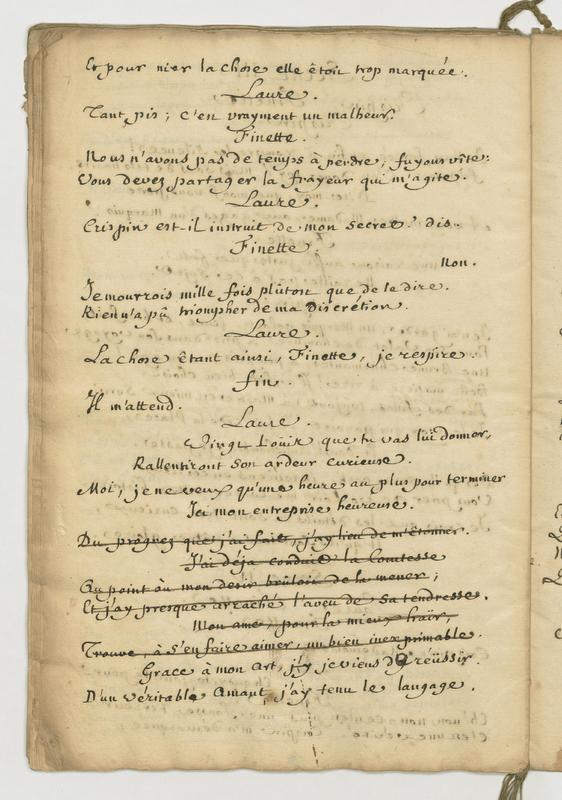 Et pour nier la chose elle êtoit trop marquée.
Laure.
Tant pis ; c'en vrayment un malheur.
Finette.
Nous n'avons pas de temps à perdre ; fuyons vîte :
Vous devez partager la frayeur qui m'agite.
Laure.
Crispin est-il instruit de mon secret ? dis.
Finette.
Non.
Je mourrois mille fois plûtost que de le dire.
Rien n'a pû triompher de ma discrétion.
Laure.
La chose êtant ainsi, Finette, je respire.
fin.
Il m'attend.
Laure.
Vingt Loüis que tu vas luï donner,
Rallentiront son ardeur curieuse.
Moi, je ne veux qu'une heure au plus pour terminer
Ici mon entreprise heureuse.
Du progrez que j'ai fait, j'ay lieu de m'étonner.
J'ai déja conduit la Comtesse
Au point où mon desir brûloit de la mener ;
Et j'ay presque arraché l'aveu de sa tendresse.
Mon ame, pour la mieux haïr,
Trouve, à s'en faire aimer, un bien inexprimable.
Grace à mon art, j'y je viens d'y réüssir.
D'un véritable Amant, j'ay tenu le langage.